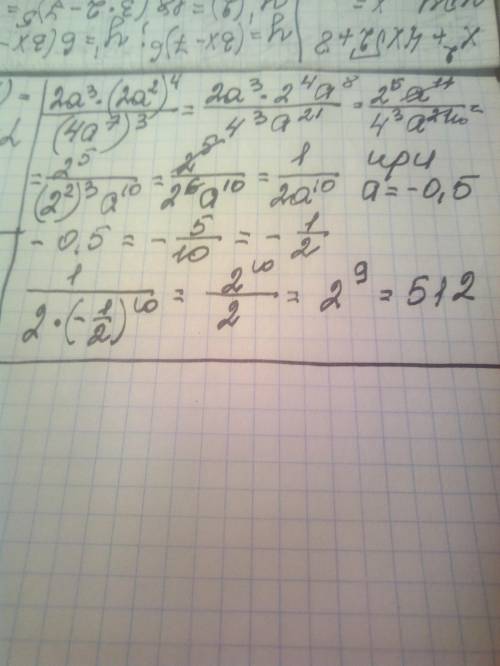 x² + 4x√2 + 8
2a³·(2a²)⁴/(4a⁷)³ = 2a³·2⁴a⁸/4³a²¹ = 2⁵a¹¹/4³a²¹
= 2⁵/(2²)³a¹⁰ = 2⁵/2⁶a¹⁰ = 1/2a¹⁰ при a = -0,5
- 0,5 = - 5/10 = - 1/2
1/2·(-1/2)¹⁰ = 2¹⁰/2 = 2⁹ = 512